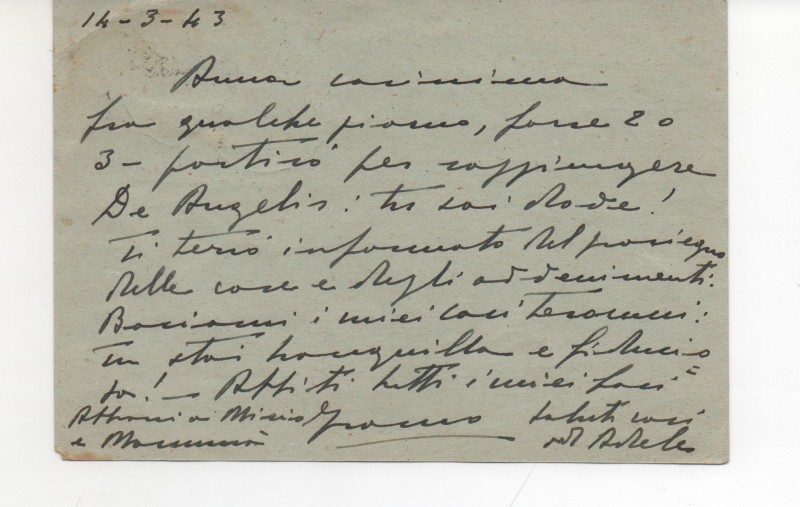 14-3-43
Anna carissima
fra qualche giorno, forse 2 o
3 - partirò per raggiungere
De Angelis: tu sai dove!
Ti terrò informato del prosieguo
delle cose e degli addenimenti.
Baciami i miei cari tesorucci:
tu stai tranquilla e fiducio
sa! - Abbiti tutti i miei baci
Abbracci a
e Mammà
saluti cari
ad Adele